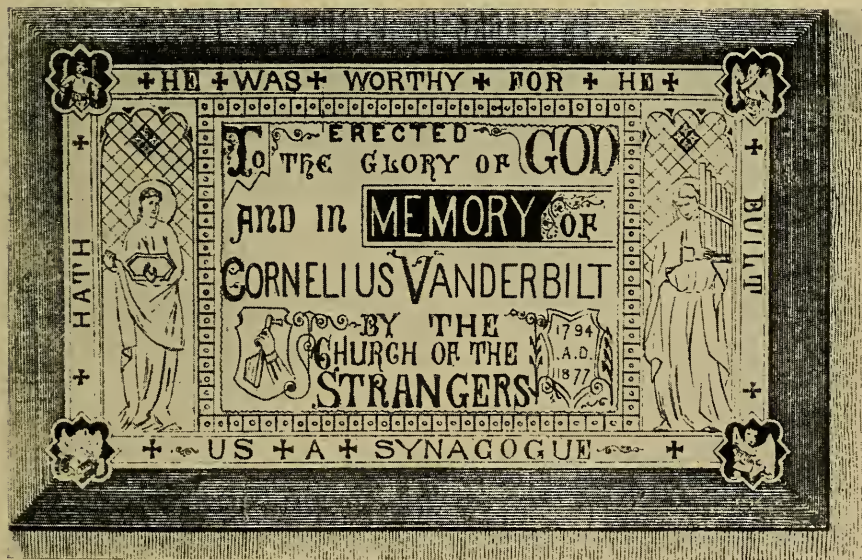 + HE + WAS + WORTHY + FOR + HE +
+ HATH +
+ BUILT +
+ US + A + SYNAGOGUE +
ERECTED
To THE GLORY OF GOD
AND IN MEMORY OF
CORNELIUS VANDERBILT
BY THE
CHURCH OF THE
STRANGERS
1794
.A.D.
1877